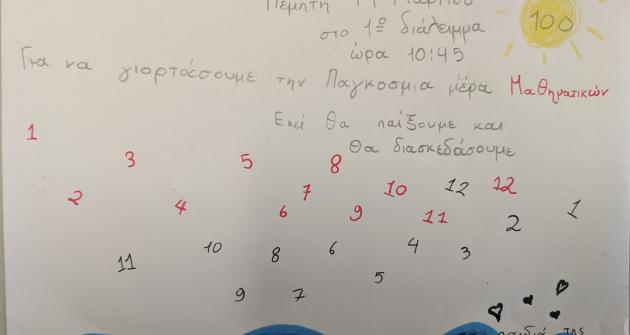 Πέμπτη
στο 1º διάλειμμα
ώρα 10:45
100
Για να γιορτάσουμε την Παγκοσμια μέρα Μαθηματικών
Εκεί θα παίξουμε και
θα διασκεδάσουμε
1
3 5 8
2 4 6 7 9 10 11 12 12
11 10 8 6 4 3 2 1
9 7 5
της